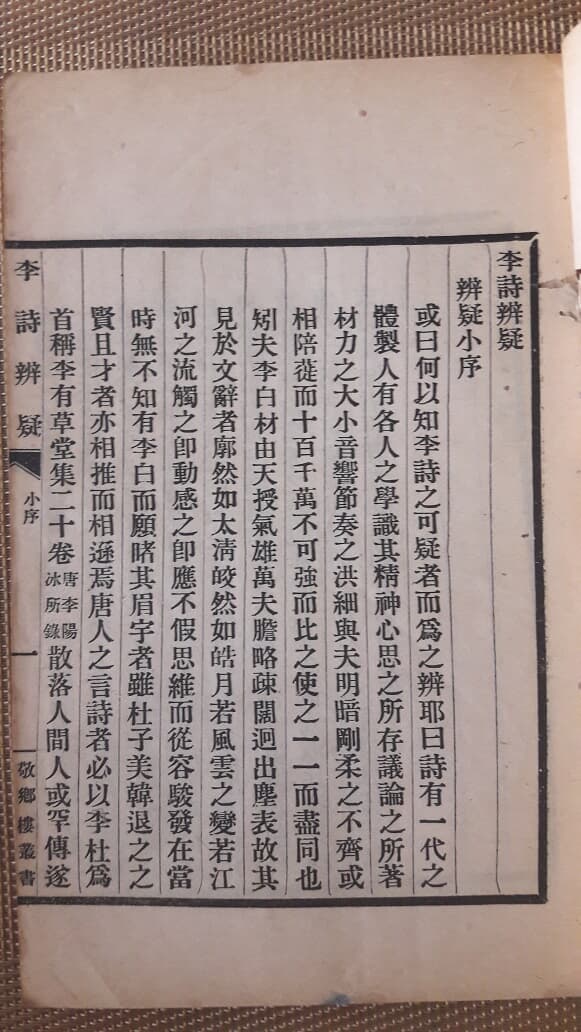 李詩辨疑
辨疑小序
或曰何以知李詩之可疑者而爲之辨耶曰詩有一代之
體製人有各人之學識其精神心思之所存議論之所著
材力之大小音響節奏之洪細與夫明暗剛柔之不齊或
相陪蓰而十百千萬不可強而比之使之一一而盡同也
矧夫李白材由天授氣雄萬夫膽略疎闊迥出塵表故其
見於文辭者廓然如太淸皎然如皓月若風雲之變若江
河之流觸之卽動感之卽應不假思維而從容駿發在當
時無不知有李白而願睹其眉宇者雖杜子美韓退之之
賢且才者亦相推而相遜焉唐人之言詩者必以李杜爲
首稱李有草堂集二十卷唐李陽冰所錄散落人間人或罕傳遂
李詩辨疑 小序 一 敬鄉樓叢書